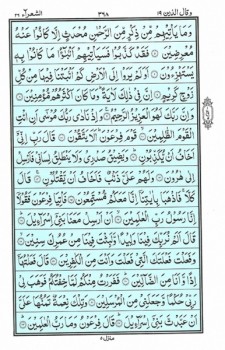 وقال الذين ١٩ ٣٩٨ الشعرآء ٢٦
وَمَا يَأْتِيْهِمْ مِّنْ ذِكْرٍ مِّنَ الرَّحْمٰنِ مُحْدَثٍ اِلَّا كَانُوْا عَنْهُ
مُعْرِضِيْنَ ۝ فَقَدْ كَذَّبُوْا فَسَيَاْتِيْهِمْ اَنْۢبٰٓؤُا مَا كَانُوْا بِهٖ
يَسْتَهْزِءُوْنَ ۝ اَوَلَمْ يَرَوْا اِلَى الْاَرْضِ كَمْ اَنْۢبَتْنَا فِيْهَا مِنْ كُلِّ
زَوْجٍ كَرِيْمٍ ۝ اِنَّ فِيْ ذٰلِكَ لَاٰيَةً ؕ وَمَا كَانَ اَكْثَرُهُمْ مُّؤْمِنِيْنَ ۝
وَاِنَّ رَبَّكَ لَهُوَ الْعَزِيْزُ الرَّحِيْمُ ۝ وَاِذْ نَادٰى رَبُّكَ مُوْسٰٓى اَنِ ائْتِ
الْقَوْمَ الظّٰلِمِيْنَ ۝ قَوْمَ فِرْعَوْنَ ؕ اَلَا يَتَّقُوْنَ ۝ قَالَ رَبِّ اِنِّيْٓ
اَخَافُ اَنْ يُّكَذِّبُوْنِ ۝ وَيَضِيْقُ صَدْرِيْ وَلَا يَنْطَلِقُ لِسَانِيْ فَاَرْسِلْ
اِلٰى هٰرُوْنَ ۝ وَلَهُمْ عَلَيَّ ذَنْۢبٌ فَاَخَافُ اَنْ يَّقْتُلُوْنِ ۝ قَالَ
كَلَّا ۚ فَاذْهَبَا بِاٰيٰتِنَآ اِنَّا مَعَكُمْ مُّسْتَمِعُوْنَ ۝ فَاْتِيَا فِرْعَوْنَ فَقُوْلَآ
اِنَّا رَسُوْلُ رَبِّ الْعٰلَمِيْنَ ۝ اَنْ اَرْسِلْ مَعَنَا بَنِيْٓ اِسْرَآءِيْلَ ۝
قَالَ اَلَمْ نُرَبِّكَ فِيْنَا وَلِيْدًا وَّلَبِثْتَ فِيْنَا مِنْ عُمُرِكَ سِنِيْنَ ۝
وَفَعَلْتَ فَعْلَتَكَ الَّتِيْ فَعَلْتَ وَاَنْتَ مِنَ الْكٰفِرِيْنَ ۝ قَالَ فَعَلْتُهَآ
اِذًا وَّاَنَا مِنَ الضَّآلِّيْنَ ۝ فَفَرَرْتُ مِنْكُمْ لَمَّا خِفْتُكُمْ فَوَهَبَ لِيْ
رَبِّيْ حُكْمًا وَّجَعَلَنِيْ مِنَ الْمُرْسَلِيْنَ ۝ وَتِلْكَ نِعْمَةٌ تَمُنُّهَا عَلَيَّ
اَنْ عَبَّدْتَّ بَنِيْٓ اِسْرَآءِيْلَ ۝ قَالَ فِرْعَوْنُ وَمَا رَبُّ الْعٰلَمِيْنَ ۝
منزل ٥